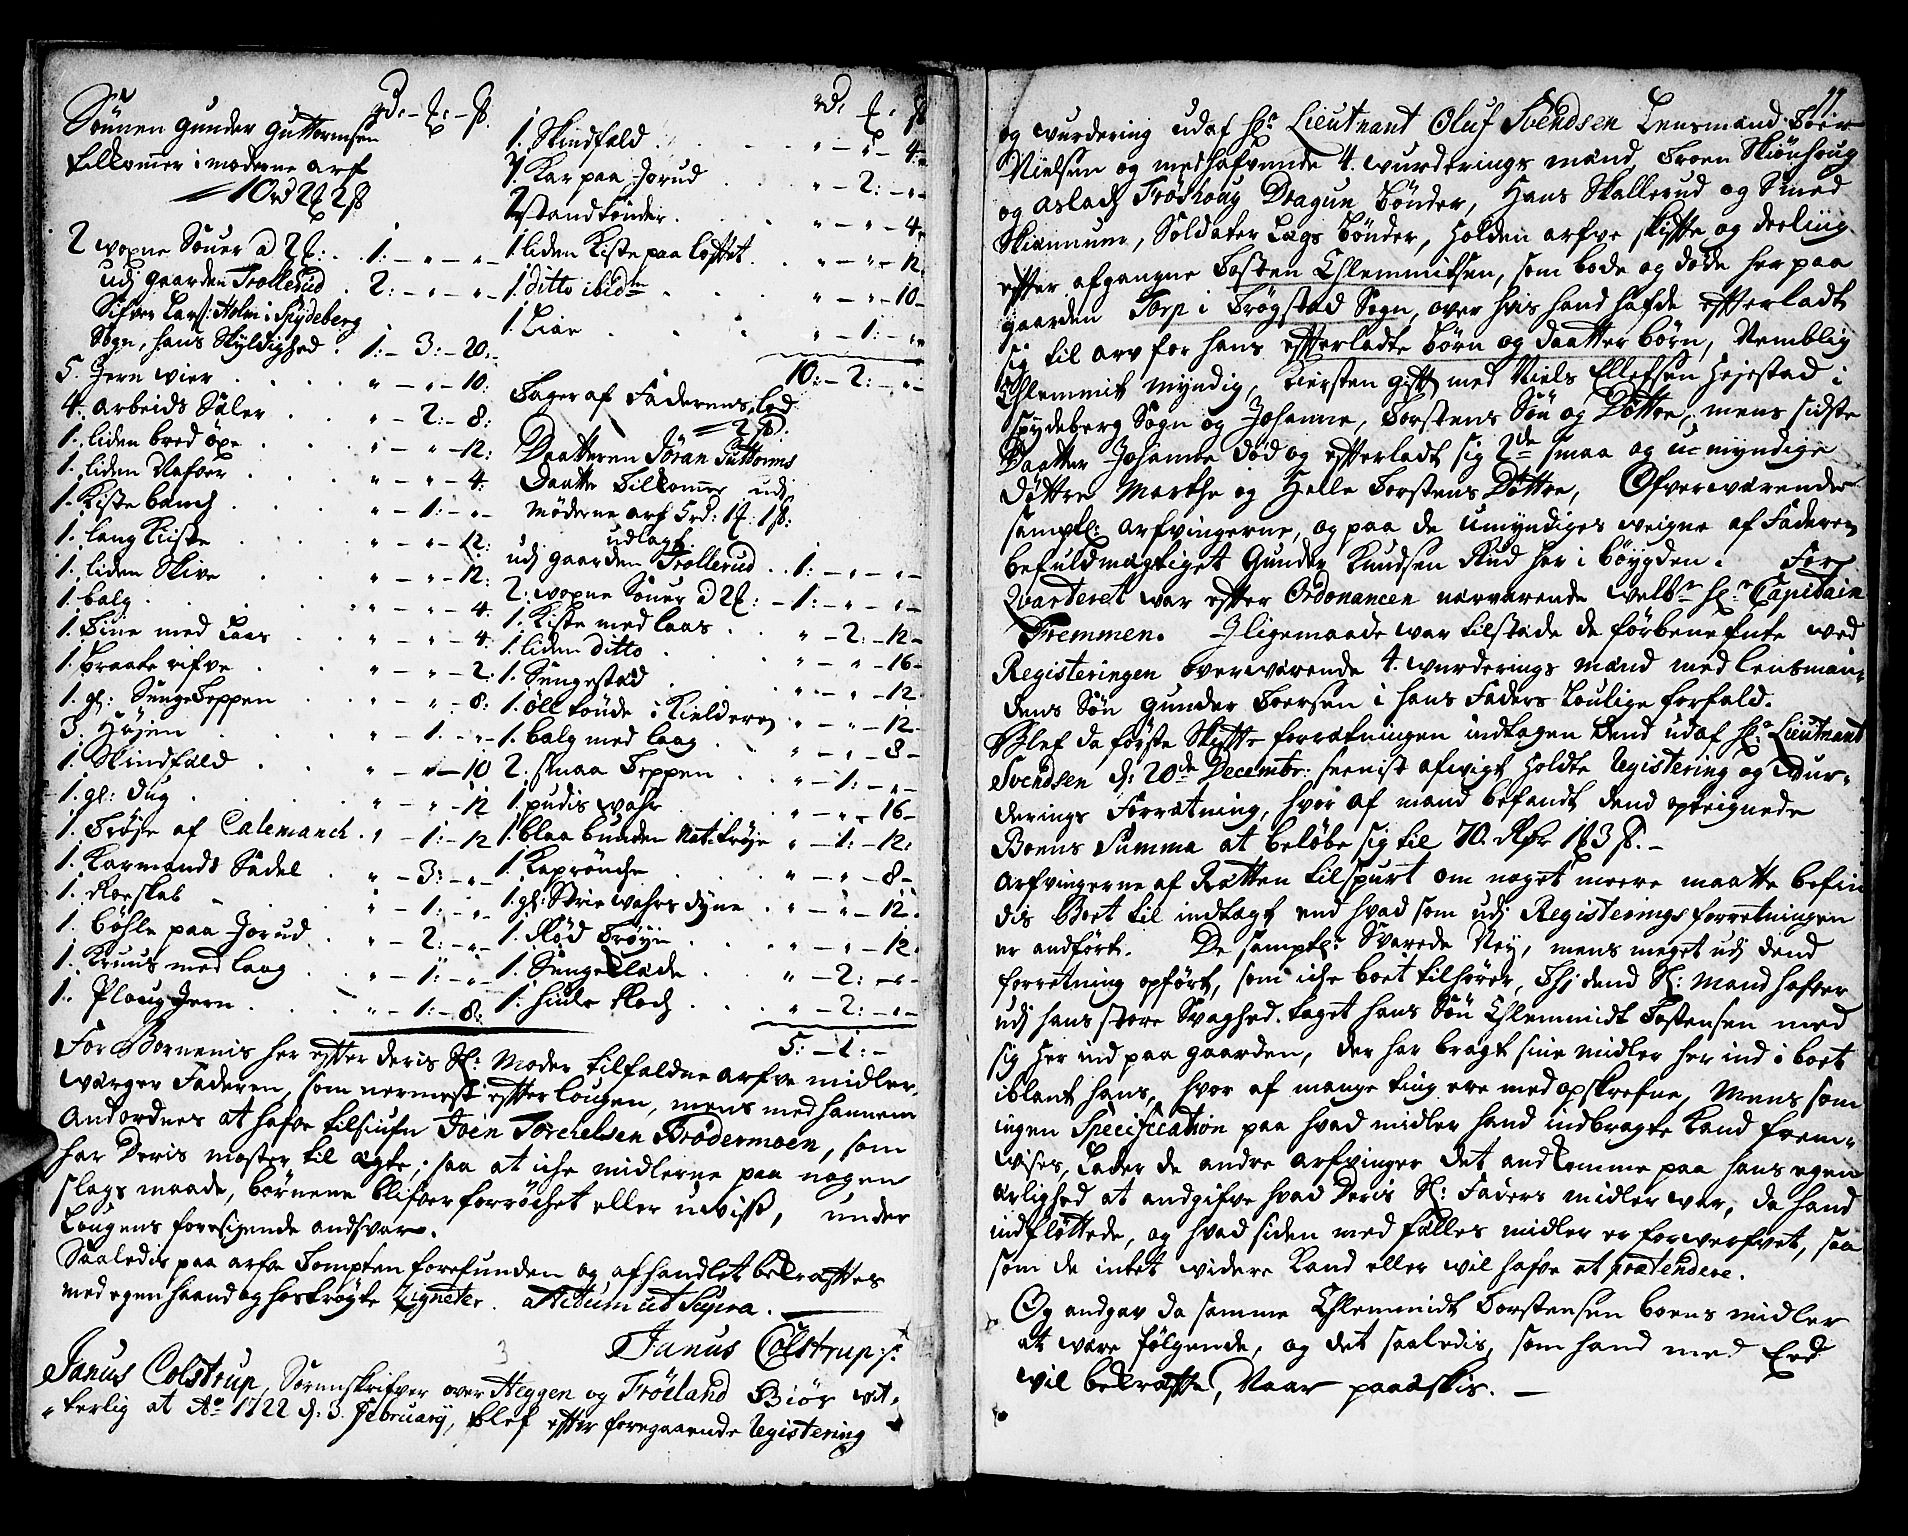 rd. - ƶ: - ß.
Sønnen Gunder Guttormsen
tilkomer i moderne arf
10 rd 2ƶ 2ß
2 woxne Souer a 2ƶ: . 1: - " - "
udj gaarden Trollerud . 2: - " - "
Sifver Larß: Holm i Spydeberg
Sogn, hans Skyldighed . 1: - 3: - 20:
5. Jern vier . . . " - " - 10:
4. arbeids Säler . . . " - 2: - 8:
1. liden bred öxe . . . " - " - 12:
1. liden Nafver . . . " - " - 4:
1. Kiste banch . . . " - 1: - "
1. lang Kiste . . . " - " - 12:
1. liden Skive . . . " - " - 12:
1. balg . . . " - " - 4:
1. Tiine med Laas . . . " - " - 4:
1. braate rifve . . . " - " - 2:
1. gl: Sengeteppen . . . " - " - 8:
3. Høyen . . . " - 1: - "
1. Skindfäld . . . " - " - 10
1. gl: dug . . . " - " - 12
1. Trøje af Calemanch . " - 1: - 12
1. Karmands Sadel . " - 3: - "
1. Roeskab . . " - 1: - "
1. bøhle paa Jorud . " - 2: - "
1. Kruus med laag . . " - 1: - "
1. Ploug Jern . . . " - 1: - 8:
rd: ƶ: ß
1. Skindfäld . . . " - " - 4:
1. Kar paa Jorud . . . " - 2: - "
2 standtønder . . . " - " - 4:
1. liden Kiste paa loftet . . " - " - 12:
1. ditto ibidm . . . " - " - 10
1. Liaa . . . " - 1: - "
10: - 2: - "
Tager af Faderens lod
2ß:
Daatteren Jøran Guttorms
Daatter tilkomer udj
Møderne arf 5rd: 1ƶ: 1ß:
udlagt
udj gaarden Trollerud . . 1: - " - "
2. woxne Souer a 2ƶ: - 1: - " - "
1. Kiste med laas . . " - 2: - 12
1. liden ditto . . . " - " - 16
1. Sengestad . . . " - " - 12
1. öll tønde i Kielderen . " - " - 12
1. balg med laag . . " - " - 8
2. smaa Teppen . . " - 1: - "
1. pudis wahr . . . " - " - 16
1. blaa bunden Nat:trøje " - 1: - 12:
1. Kaprønche . . . " - " - 8
1. gl: Strie wahrs dyne . " - " - 12:
1. Rød Trøyie . . . " - " - 12:
1. Sengeklæde . . . " - 2: - "
1. hiule Roch . . . " - 2: - "
5: - 1: -
For Børnenis her effter deris Sl: Moder tilfaldne arfve midler,
wärger Faderen, som nermest effter lougen, mens med hannem
andordnes at hafve tilsiufn Joen Torchelsen Brødermoen, som
har Deris moster til ægte, saa at iche midlerne paa nogen
slags maade, børnene blifver forrøchet eller uviss, under
Lougens foresigende andsvar.
Saaledis paa arfve Tompten forefunden og afhandlet bekræfftes
med egen haand og hostrøgte Zigneter. Actum ut Supra.
Janus Colstrup
Janus Colstrup, Sorenskrifver over Heggen og Frøeland Giør vit-
terlig at Ao 1722 d: 3. February, blef effter foregaaende Registering
99.
og wurdering udaf Hr Lieutnant Oluf Svendsen Lensmand Toer
Nielsen og medhafvende 4. wurderings mänd, Troen Skiønhoug
og Aslach Frøshoug Dragun bønder, Hans Skallerud og Smed
Skiønnum, Soldater Lags bønder, holden arfve skiffte og deeling
effter afgangne Tosten Chlemmitsen, som bode og døde her paa
gaarden Torp i Trøgstad Sogn, over hvis hand hafde efferladt
sig til arv for hans effterladte børn og daatter børn, Nemblig
Chlemmit myndig, Kiersten gifft med Niels Ellefsen Hejestad i
Spydeberg Sogn og Johanne, Torstens Søn og Døttre, mens sidste
Daatter Johanne død og effterladt sig 2de smaa og umyndige
Døttre Marthe og Helle Torstens Døttre, Ofverwärende
samptl: arfvingerne, og paa de umyndiges weigne af Faderen
befuldmægtiget Gunder Knudsen Rud her i bøygden. For
Qvarteret war effter Ordonancen närwärende welbr Hr Capitain
Fremmen. I ligemaade war tilstäde de førbenefnte wed
Registeringen overwärende 4. wurderings mænd med lensman-
dens Søn Gunder Toersen i hans Faders Loulige forfald.
Blef da først Skiffte forrætningen indtagen dend udaf Hr Lieutnant
Svendsen d: 20de Decembr: seenist afvigt holdte Registering og Vur-
derings Forrætning, hvor af mand befandt dend opteignede
Boens Summa at beløbe sig til 70. Rdr 1ƶ 3ß. -
Arfvingerne af Rætten tilspurt om noget meere maatte befin
dis Boet til indtægt end hvad som udj Registerings forretningen
er andført. De samptl: Svarede Ney, mens meget udj dend
forretning opført, som iche boet tilhører, Thj dend Sl: Mand hafver
udj hans store Svaghed taget hans Søn Chlemmidt Tostensen med
sig her ind paa gaarden, der har bragt sine midler her ind i boet
iblant hans, hvor af mange ting ere med opskrefne, Mens som
ingen Specification paa hvad midler hand indbragte kand frem-
wises, Lader de andre arfvinger det andkomme paa hans egen
ärlighed at andgifve hvad Deris Sl: Faders midler war, da hand
indfløttede, og hvad siden med fälles midler er forwerfvet, saa
som de intet widere kand eller wil hafve at prætendere.
Og andgav da samme Chlemmidt Torstensen boens midler
at wäre følgende, og det saaledis, som hand med Eed
wil bekræffte, Naar paaæskis. -